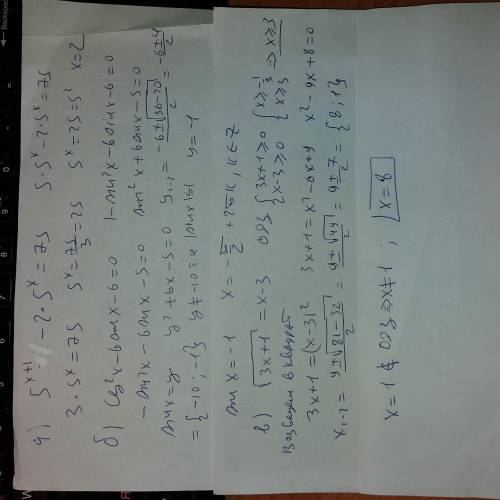 а) 5^{x+1} - 2·5^x = 75   5·5^x - 2·5^x = 75
3·5^x = 75   5^x = 75/3 = 25   5^x = 25 = 5^2   x = 2
б) cos^2x - 6sinx - 6 = 0   1 - sin^2x - 6sinx - 6 = 0
-sin^2x - 6sinx - 5 = 0   sin^2x + 6sinx - 5 = 0
sinx = y   y^2 + 6x - 5 = 0   y_{1-2} = (-6 ± √(36-20))/2 = (-6 ± 4)/2
= {-10; -1}   y ≠ -10 т.к |sinx| ≤ 1   y = -1
sin x = -1   x = -π/2 + 2πk, k ∈ Z
в) √(3x+1) = x-3   ОДЗ {3x+1 ≥ 0 {x ≥ -1/3 ⇒ x ≥ 3
{x-3 ≥ 0 {x ≥ 3
Возведем в квадрат
3x+1 = (x-3)^2   3x+1 = x^2 - 6x + 9   x^2 - 9x + 8 = 0
x_{1-2} = (9 ± √(81-32))/2 = (9 ± √49)/2 = (9 ± 7)/2 = {8; 1}
x = 1 ∉ ОДЗ ⇒ x ≠ 1 ; x = 8